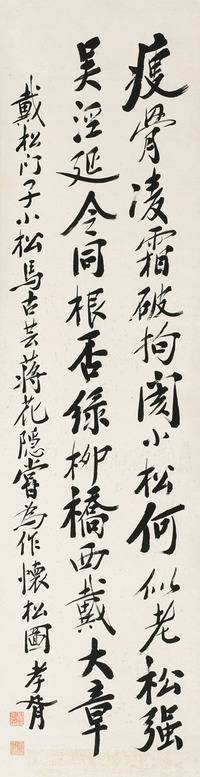 瘦骨凌霜破拘阂小松何似老松強
吴淞延令同根否绿柳橋西戴大章
戴松门子小松馬古芸蒋花隱嘗為作懷松圖 孝胥